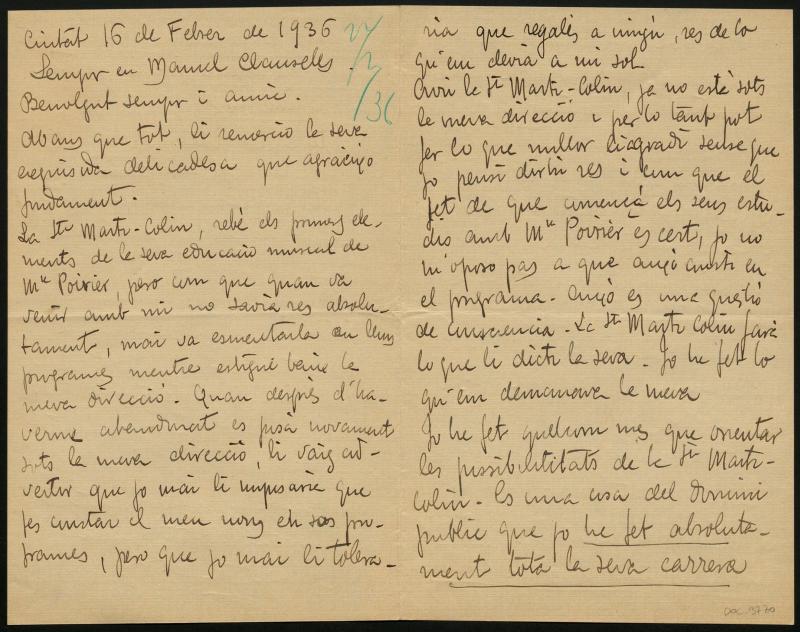 Ciutat 16 de Febrer de 1936
27/2/36
Senyor en Manuel Clausells
Benvolgut senyor i amic.
Abans que tot, li remercio la seva
exquisida delicadesa que agraeixo
fundament.
La Sta Martí-Colin, rebé els primers ele-
ments de la seva educació musical de
Mlle Poirier, pero com que quan va
venir amb mi no savia res absolu-
tament, mai va esmentarla en llurs
programes mentre estigué baix la
meva direcció. Quan després d'ha-
verme abandonat es posà novament
sots la meva direcció, li vaig ad-
vertir que jo mai li imposaria que
fes constar el meu nom en sos pro-
grames, pero que jo mai li tolera-
ria que regalés a ningú, res de lo
qu'em devia a mi sol.
Avui la Sta Martí-Colin, ja no està sots
la meva direcció i per lo tant pot
fer lo que millor li agradi sense que
jo pensi dirhi res i com que el
fet de que comencà els seus estu-
dis amb Mlle Poirier es cert, jo no
m'oposo pas a que aixó consti en
el programa. Aixó es una questió
de consciencia. La Sta Martí Colin farà
lo que li dicti la seva. Jo he fet lo
qu'em demanava la meva
Jo he fet quelcom mes que orientar
les possibilitats de la Sta Martí-
Colin. Es una cosa del domini
public que jo he fet absoluta-
ment tota la seva carrera
DOC. 3770